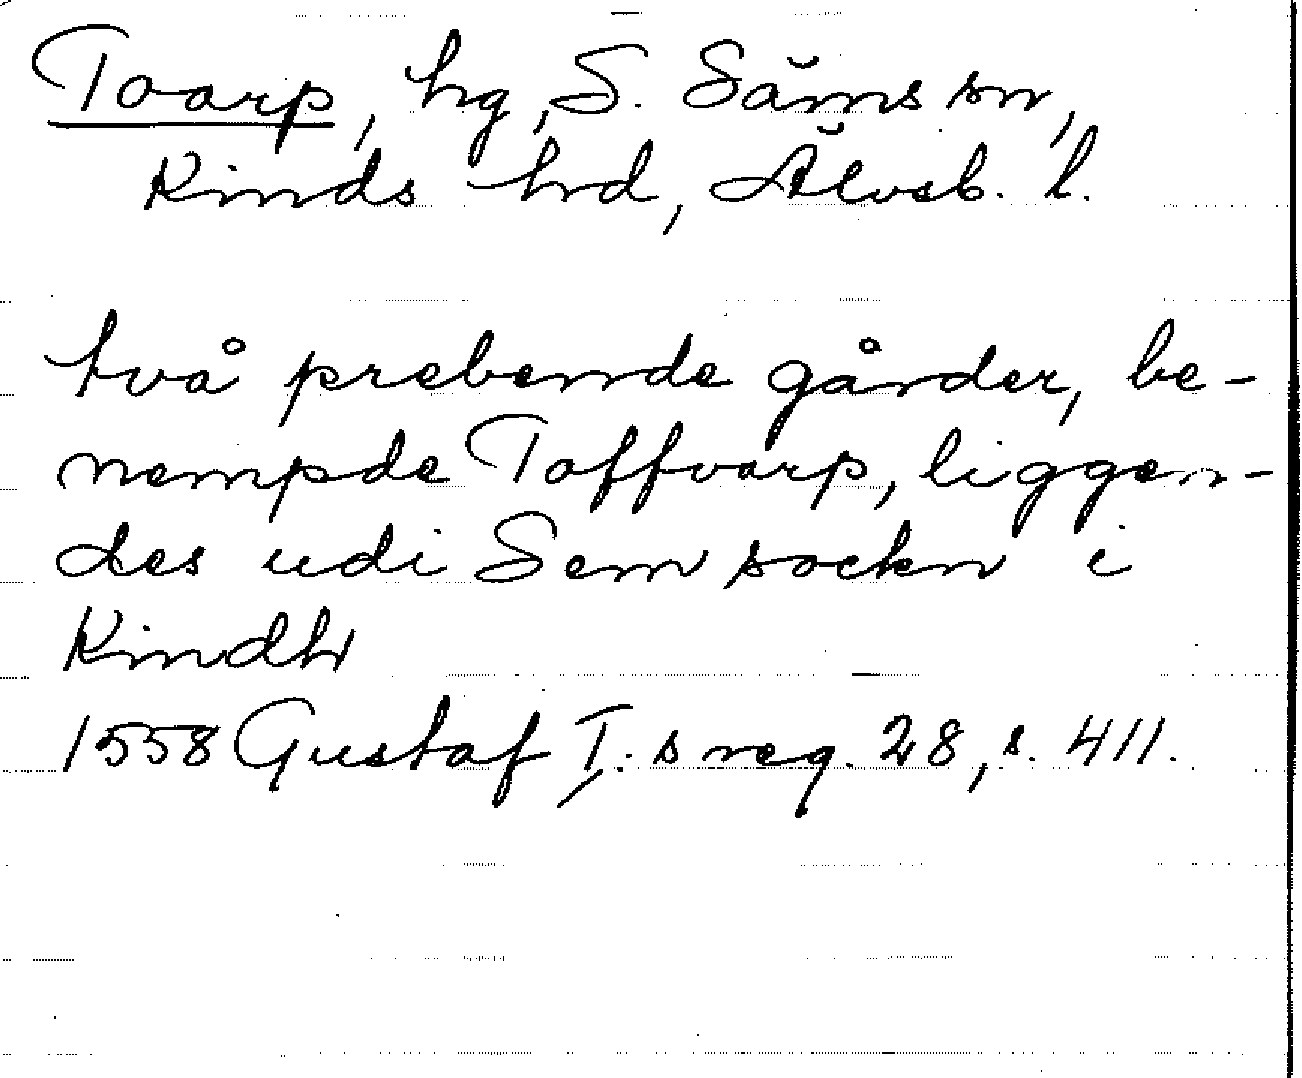 Toarp, hg, S. Säms sn,
Kinds hrd, Älvsb. l.
två prebende gårder, be-
nempde Toffvarp, liggen-
des udi Sem sockn i
Kindh
1558 Gustaf I:s reg. 28, s. 411.